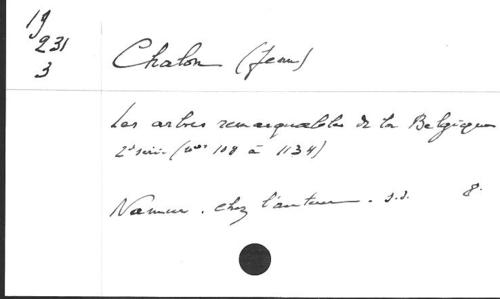 19
231
3
Chalon (Jean)
Les arbres remarquables de la Belgique
2e série (nos 108 à 1134)
Namur. chez l'auteur. s.d. 8.